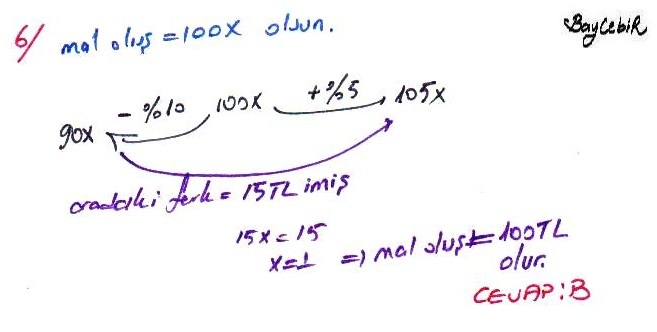 6/ mal oluş = 100x olsun.
BayCebiR
90x - %10 100x + %5 105x
aradaki fark = 15TL imiş
15x = 15
x=1 => mal oluş = 100TL
olur.
CEVAP: B